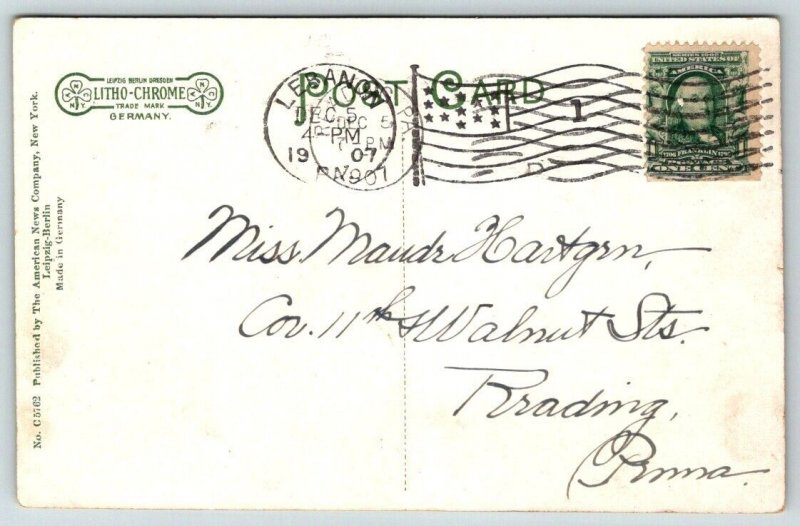 LEIPZIG BERLIN DRESDEN
LITHO-CHROME
TRADE MARK
GERMANY.
N.Y.
N.Y.
POST CARD
LEBANON PA.
DEC 5
4 PM
1907
DEC 5
7 PM
1907
1
SERIES 1902
UNITED STATES OF
AMERICA
FRANKLIN
POSTAGE
ONE CENT
Miss Maude Hartgen,
Cor. 11th & Walnut Sts.
Reading,
Penna.
No. C5762 Published by The American News Company, New York.
Leipzig-Berlin
Made in Germany